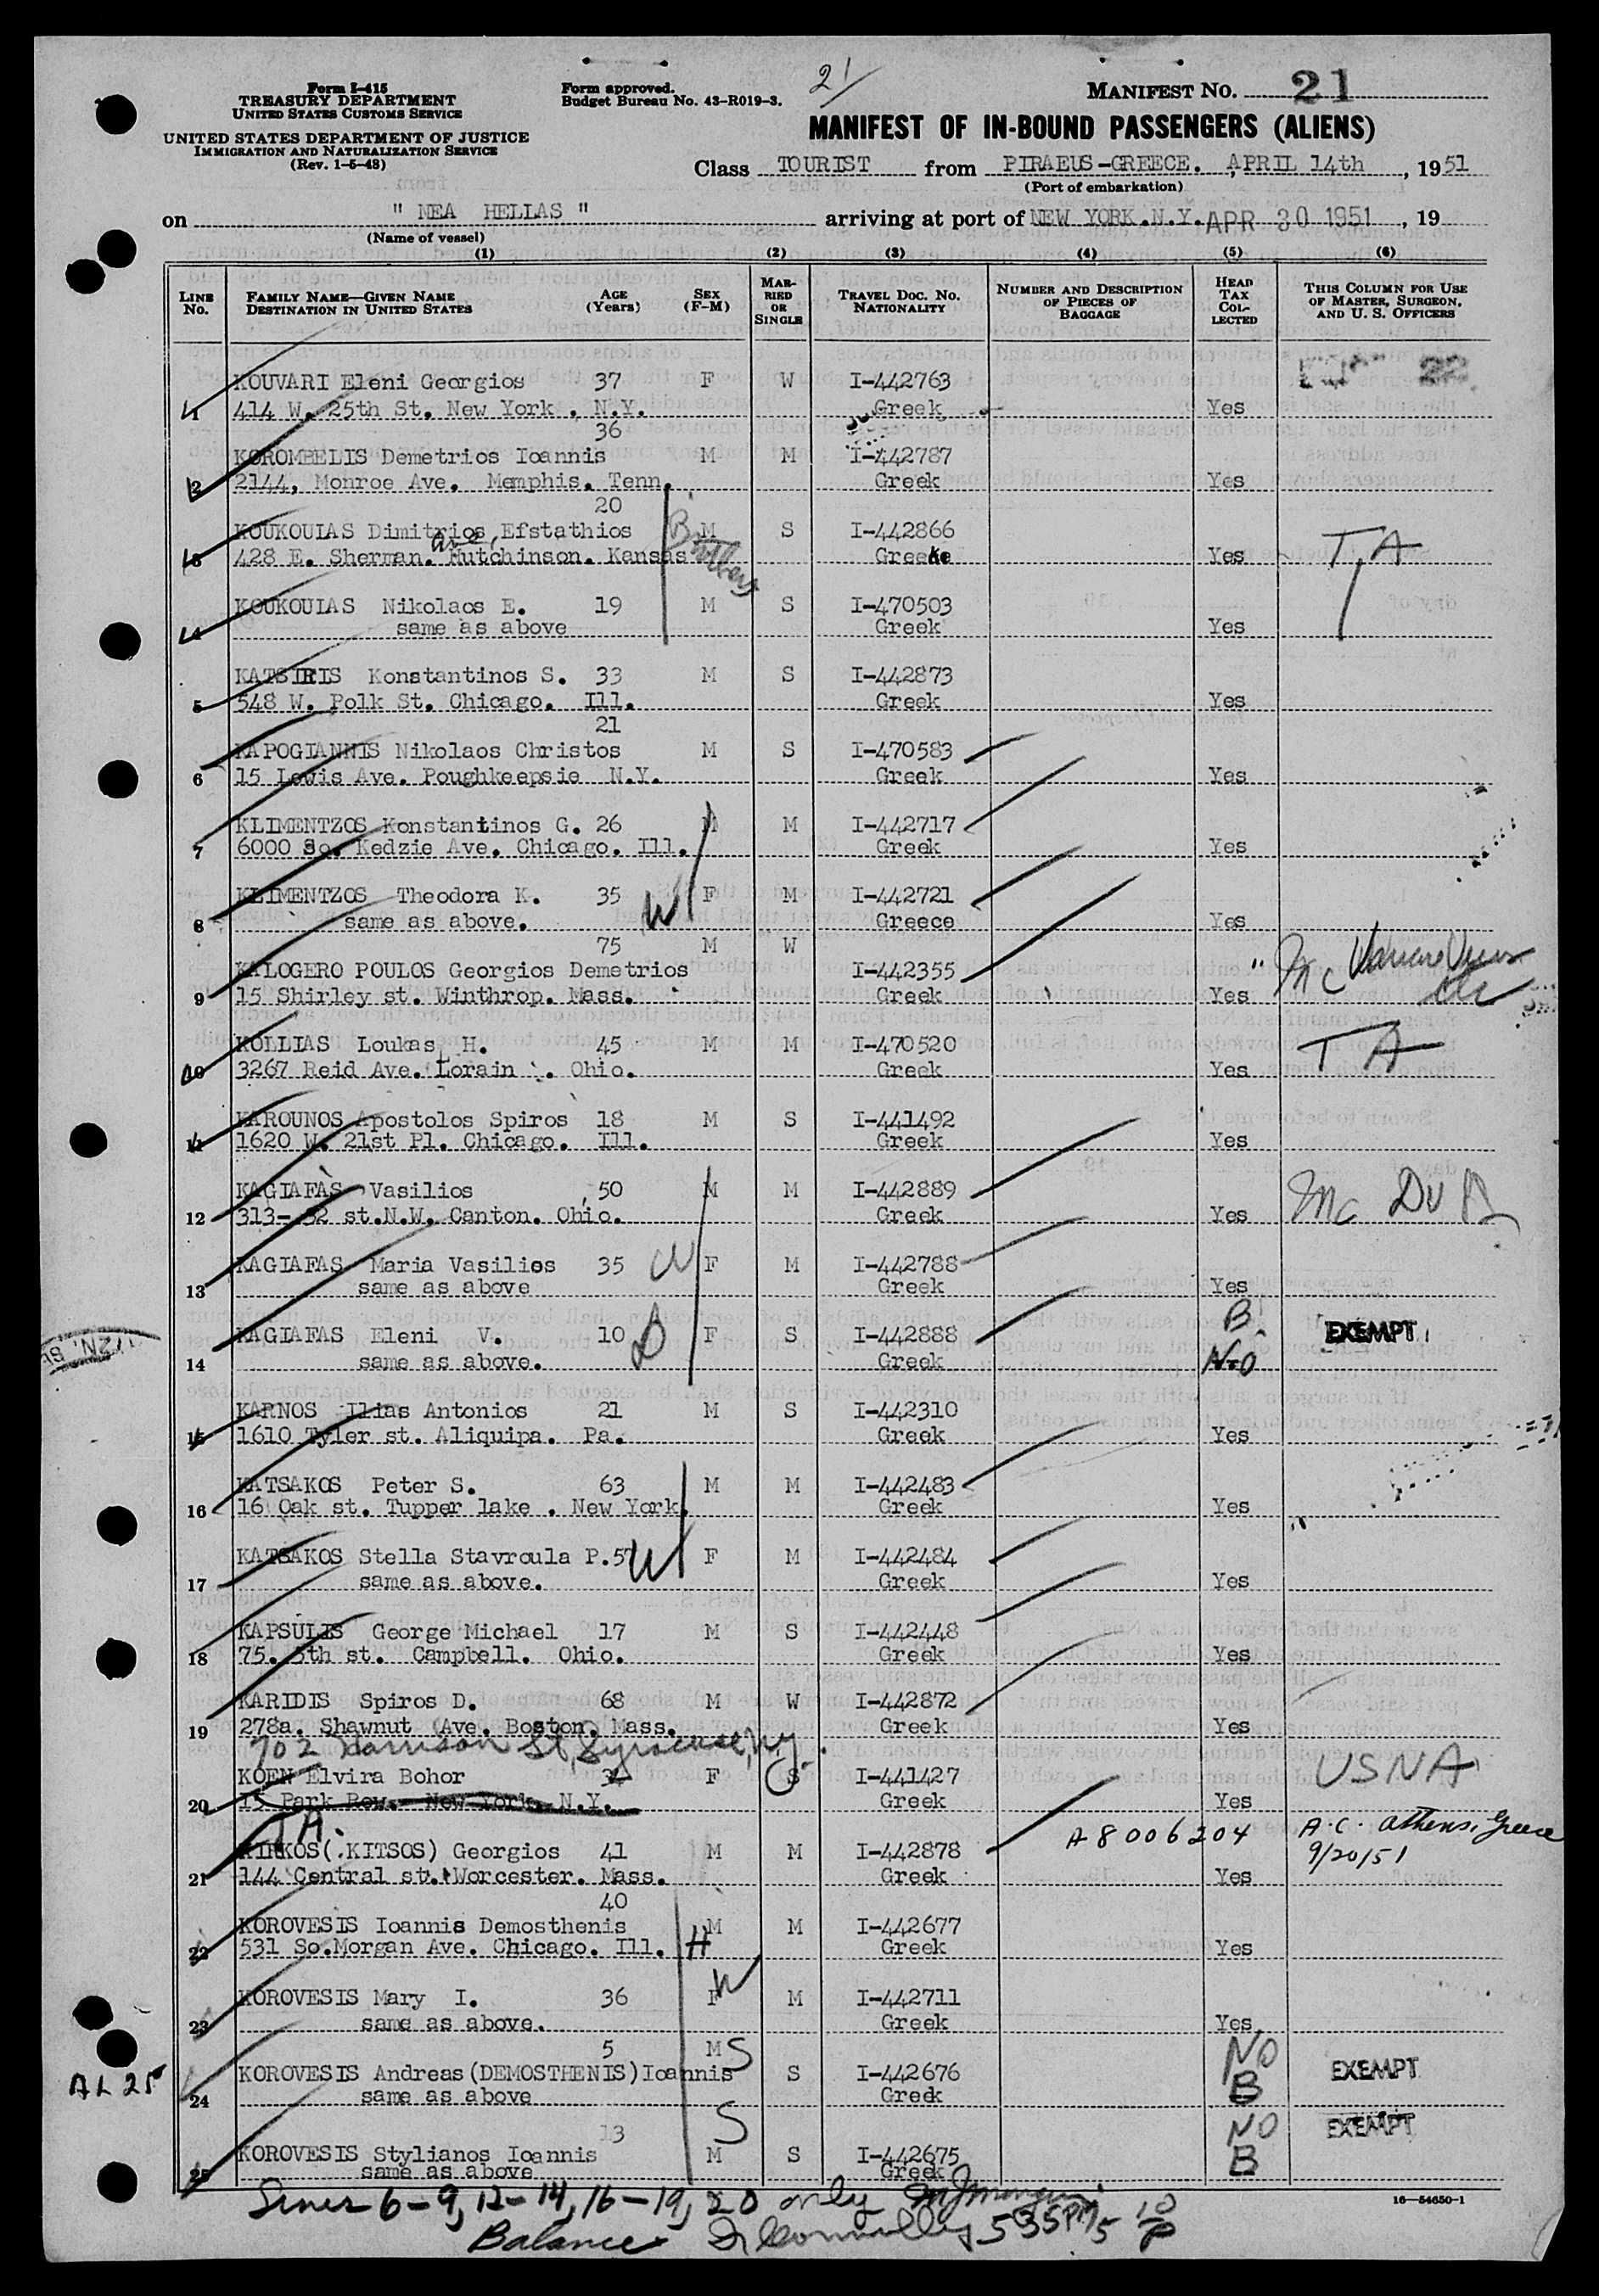 Form I-415
TREASURY DEPARTMENT
UNITED STATES CUSTOMS SERVICE
UNITED STATES DEPARTMENT OF JUSTICE
IMMIGRATION AND NATURALIZATION SERVICE
(Rev. 1-5-48)
Form approved.
Budget Bureau No. 43-R019-3.
21/
MANIFEST NO. 21
MANIFEST OF IN-BOUND PASSENGERS (ALIENS)
Class TOURIST from PIRAEUS-GREECE. , APRIL 14th , 1951
(Port of embarkation)
on " NEA HELLAS " arriving at port of NEW YORK.N.Y. APR 30 1951 , 19
(Name of vessel)
(1) (2) (3) (4) (5) (6)
LINE No. FAMILY NAME—GIVEN NAME DESTINATION IN UNITED STATES AGE (Years) SEX (F-M) MARRIED OR SINGLE TRAVEL DOC. NO. NATIONALITY NUMBER AND DESCRIPTION OF PIECES OF BAGGAGE HEAD TAX COLLECTED THIS COLUMN FOR USE OF MASTER, SURGEON, AND U. S. OFFICERS
22
KOUVARI Eleni Georgios 37 F W I-442763
1 414 W. 25th St. New York . N.Y. Greek Yes
36
KOROMPELIS Demetrios Ioannis M M I-442787
2 2144, Monroe Ave. Memphis. Tenn. Greek Yes
20
KOUKOUIAS Dimitrios Efstathios Brothers M S I-442866
3 428 E. Sherman. Ave, Hutchinson. Kansas Greek Yes TA
KOUKOUIAS Nikolaos E. 19 M S I-470503
4 same as above Greek Yes
KATSIRIS Konstantinos S. 33 M S I-442873
5 548 W. Polk St. Chicago. Ill. Greek Yes
21
KAPOGIANNIS Nikolaos Christos M S I-470583
6 15 Lewis Ave. Poughkeepsie N.Y. Greek Yes
KLIMENTZOS Konstantinos G. 26 M M I-442717
7 6000 So. Kedzie Ave. Chicago. Ill. Greek Yes
KLIMENTZOS Theodora K. 35 W F M I-442721
8 same as above. Greece Yes
75 M W
KALOGERO POULOS Georgios Demetrios I-442355 " Mc
9 15 Shirley st. Winthrop. Mass. Greek Yes
KOLLIAS Loukas H. 45 M M I-470520 TA
10 3267 Reid Ave. Lorain . Ohio. Greek Yes
KAROUNOS Apostolos Spiros 18 M S I-441492
11 1620 W. 21st Pl. Chicago. Ill. Greek Yes
KAGIAFAS Vasilios 50 M M I-442889 Mc
12 313- 32 st.N.W. Canton. Ohio. Greek Yes
KAGIAFAS Maria Vasilios 35 W F M I-442788
13 same as above Greek Yes
KAGIAFAS Eleni V. 10 D F S I-442888 B EXEMPT
14 same as above. Greek No
KARNOS Ilias Antonios 21 M S I-442310
15 1610 Tyler st. Aliquipa. Pa. Greek Yes
KATSAKOS Peter S. 63 M M I-442483
16 16 Oak st. Tupper lake . New York. Greek Yes
KATSAKOS Stella Stavroula P. 57 W F M I-442484
17 same as above. Greek Yes
KAPSULIS George Michael 17 M S I-442448
18 75. 5th st. Campbell. Ohio. Greek Yes
KARIDIS Spiros D. 68 M W I-442872
19 278a. Shawnut Ave. Boston. Mass. Greek Yes
702 Harrison St, Syracuse, N.Y.
KOEN Elvira Bohor F S I-441427 USNA
20 15 Park Row. New York. N.Y. Greek Yes
T.A.
KIRKOS(.KITSOS) Georgios 41 M M I-442878 A8006204 A.C. Athens, Greece
21 144 Central st. Worcester. Mass. Greek Yes 9/20/51
40
KOROVESIS Ioannis Demosthenis M M I-442677
22 531 So.Morgan Ave. Chicago. Ill. H Greek Yes
KOROVESIS Mary I. 36 F W M I-442711
23 same as above. Greek Yes
5 M S NO
KOROVESIS Andreas(DEMOSTHENIS)Ioannis S I-442676 EXEMPT
AL 25 24 same as above Greek B
13 S NO EXEMPT
KOROVESIS Stylianos Ioannis M S I-442675 B
25 same as above Greek
16—54650-1
Lines 6-9, 12-14, 16-19, 20 only
Balance Connolly 535 PM